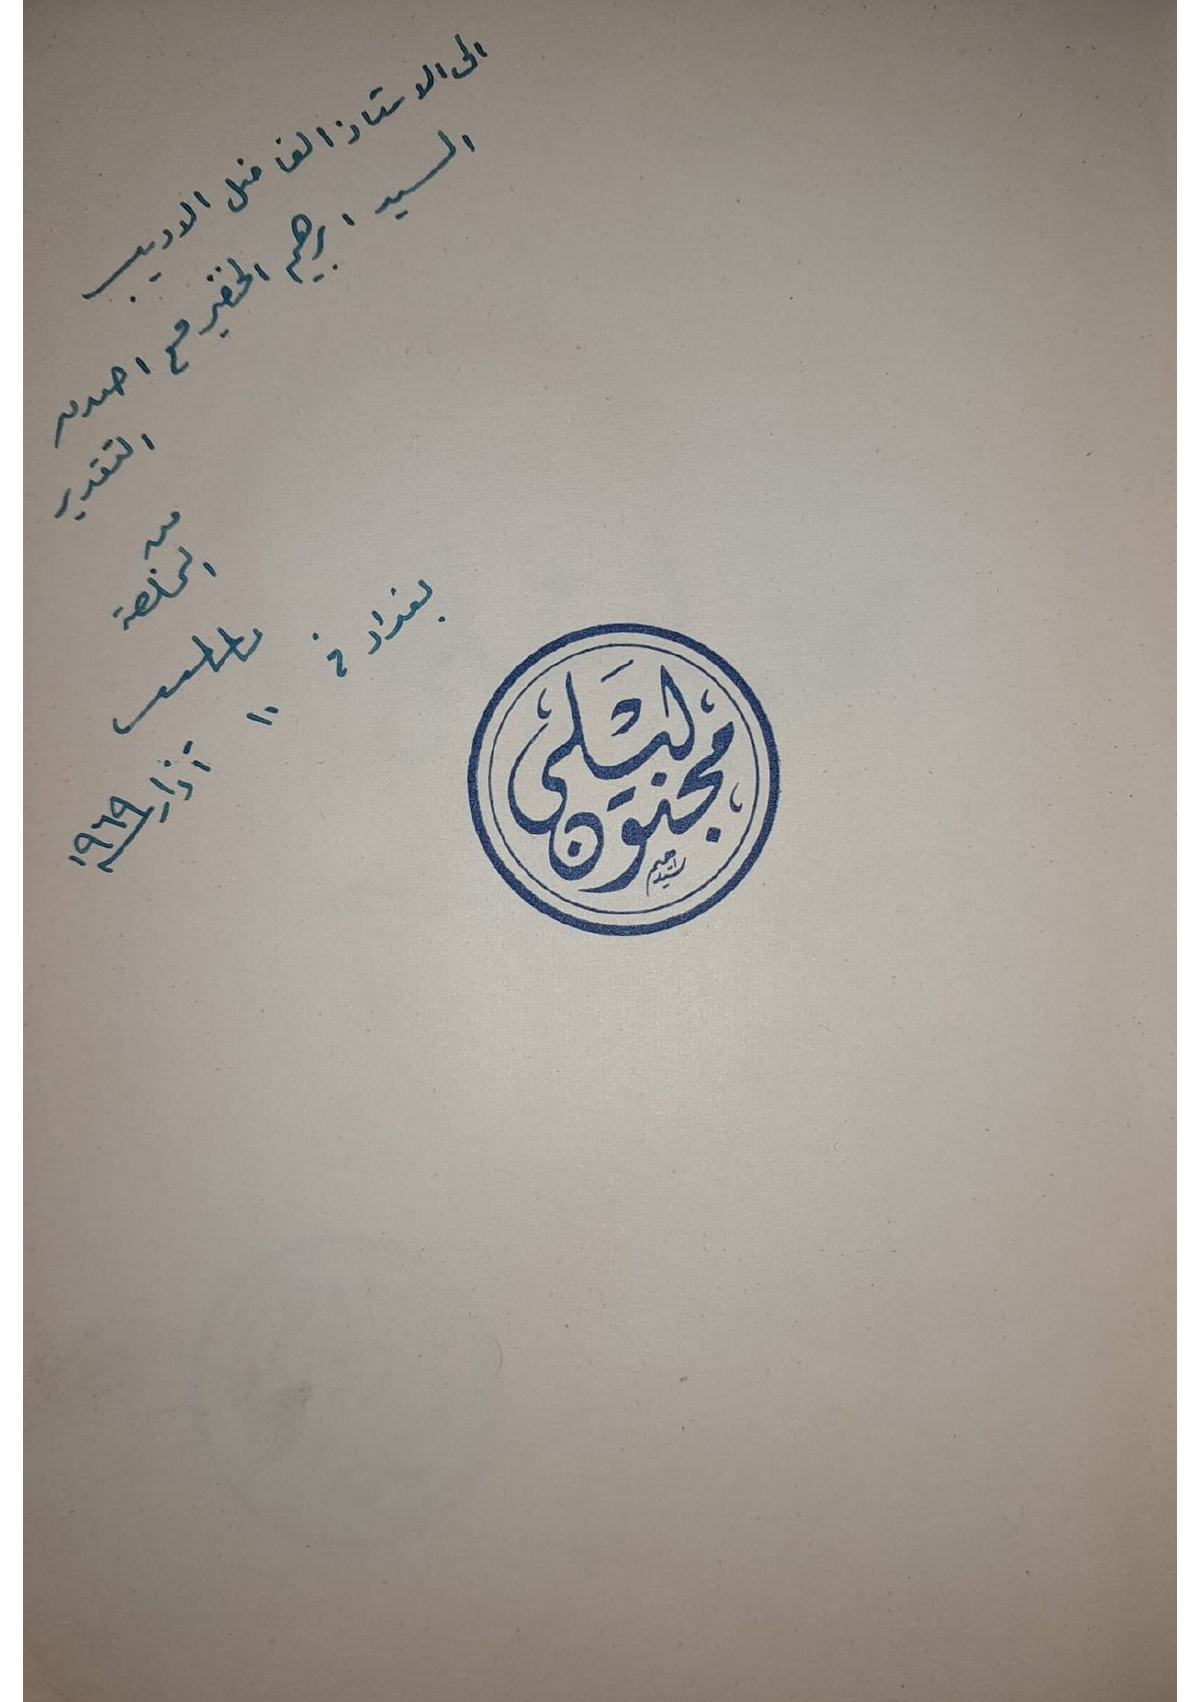 الى الاستاذ الفاضل الاديب
السيد ابرهيم الخضير مع اصدق
التقدير
من
المخلصة
بغداد في
١٠ آذار ١٩٦٩
مجنون ليلى